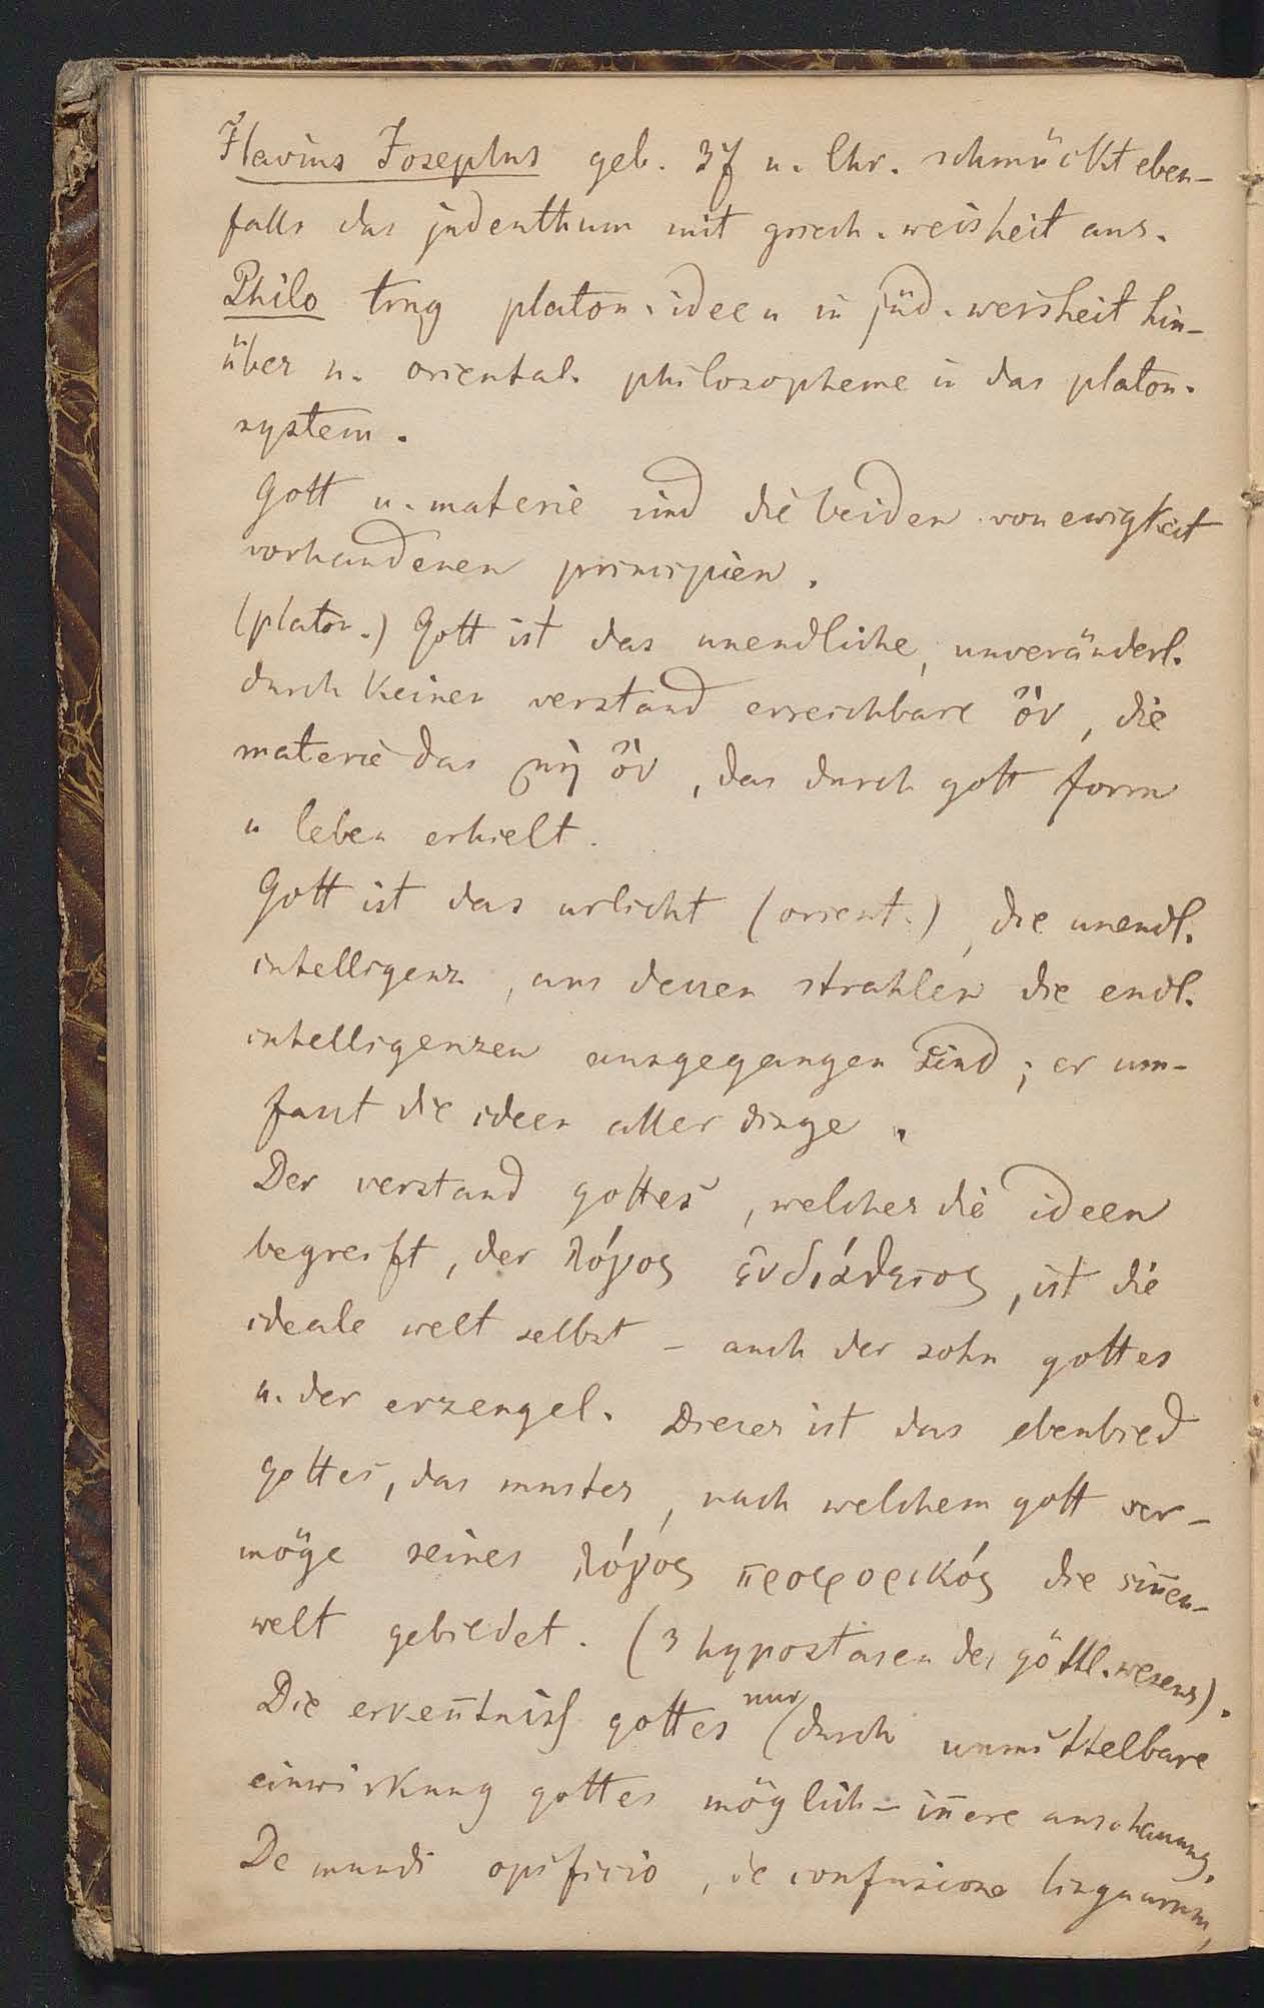 Flavius Josephus geb. 37 n. Chr. schmückt eben-
falls das judenthum mit griech. weisheit aus.
Philo trug platon. ideen in jüd. weisheit hin-
über u. oriental. philosopheme in das platon.
system.
Gott u. materie sind die beiden von ewigkeit
vorhandenen principien.
(platon.) Gott ist das unendliche, unveränderl.
durch keinen verstand erreichbare ὄν, die
materie das μὴ ὄν, das durch gott form
u leben erhielt.
Gott ist das urlicht (orient.), die unendl.
intelligenz, aus dessen strahlen die endl.
intelligenzen ausgegangen sind; er um-
fasst die ideen aller dinge.
Der verstand gottes, welcher die ideen
begreift, der λόγος ἐνδιάθετος, ist die
ideale welt selbst – auch der sohn gottes
u. der erzengel. Dieser ist das ebenbied
gottes, das muster, nach welchem gott ver-
möge seines λόγος προφορικός die sin̄en-
welt gebiedet. (3 hypostasen des göttl. wesens).
Die erken̄tniss gottes nur durch unmittelbare
einwirkung gottes möglich – in̄ere anschauung.
De mundi opificio, de confusione linguarum,